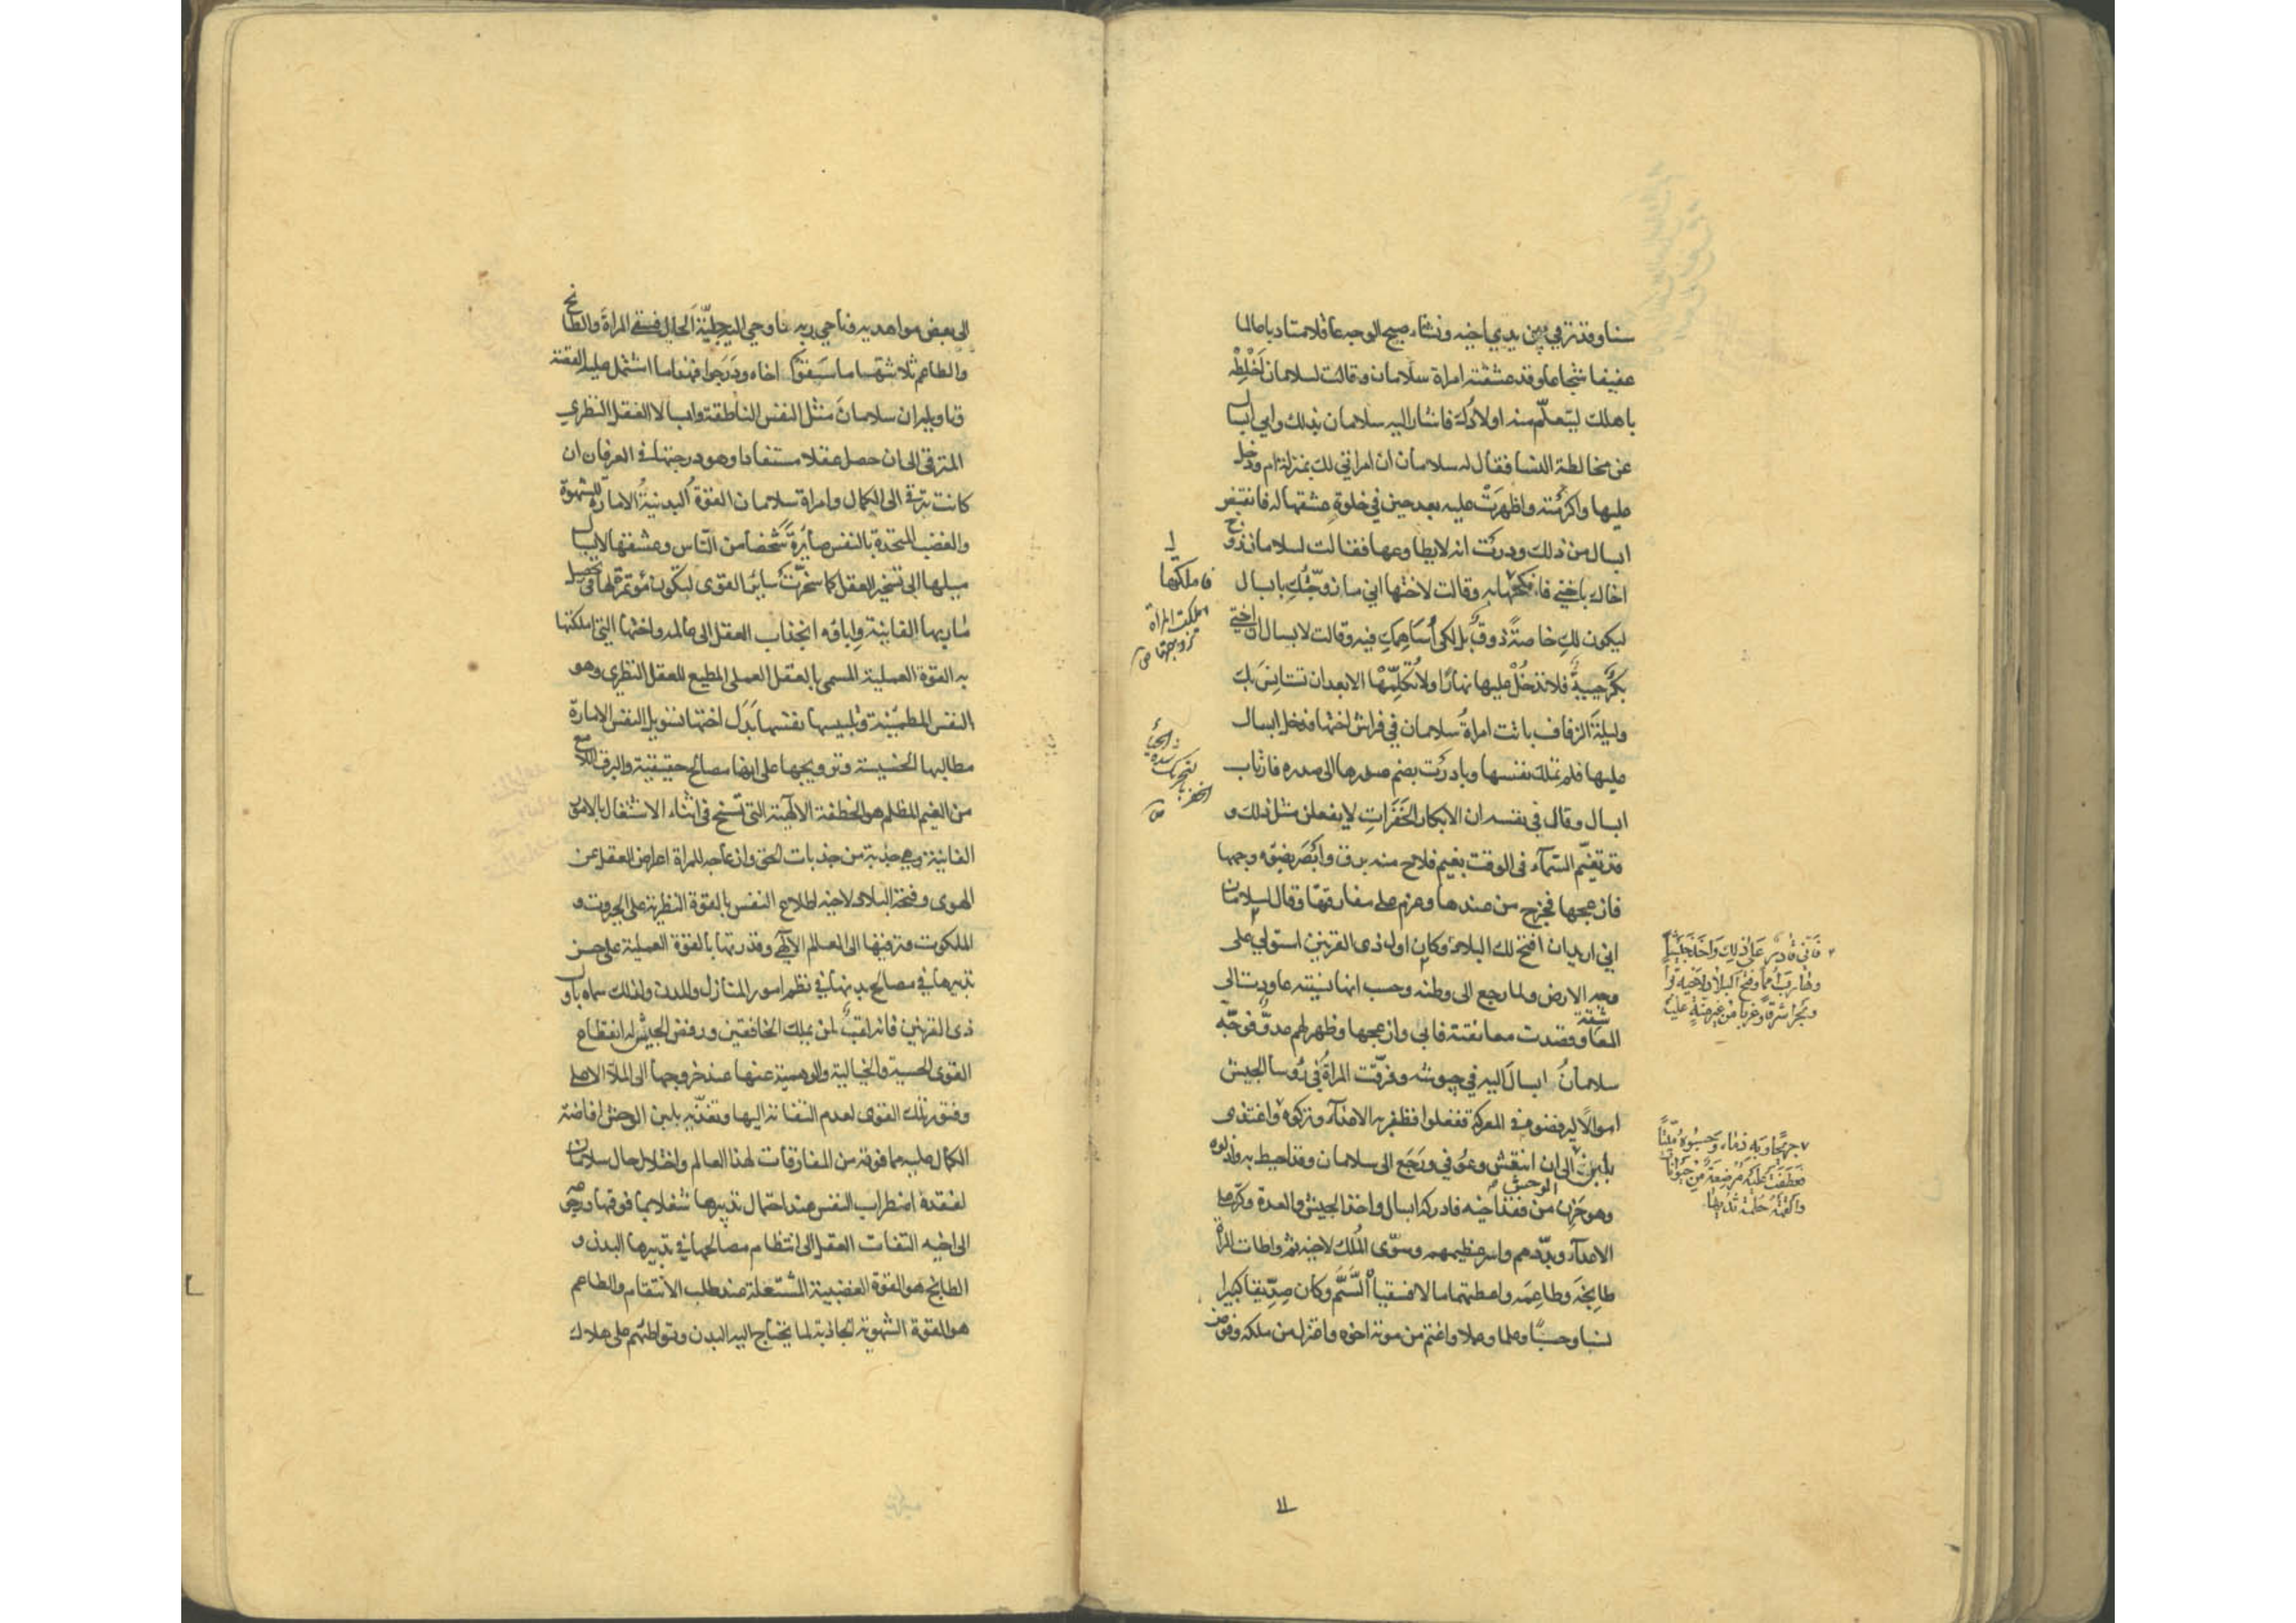 سنا وقد تربي بين يدي اخيه ونشاء صبيح الوجه عاقلا متادبا عالما
عفيفا شجاعا وقد عشقته امراة سلامان وقالت لسلامان اخلطه
باهلك ليتعلم منه اولادك فاشار اليه سلامان بذلك وابي ابسال
عن مخالطة النسا فقال له سلامان ان امراتي لك بمنزلة ام ودخل
عليها واكرمته واظهرت عليه بعد حين في خلوة عشقها له فانقبض
ابسال من ذلك ودرت انه لا يطاوعها فقالت لسلامان زوج
اخاك باختي فانكحها به وقالت لاختها اني ما زوجتك بابسال
ليكون لك خاصة دوني بل لكي اساهمك فيه وقالت لابسال ان اختي
بكر حيية فلا تدخل عليها نهارا ولا تكلمها الا بعد ان تستانس بك
وليلة الزفاف باتت امراة سلامان في فراش اختها فدخل ابسال
عليها فلم تملك نفسها وبادرت بضم صدرها الى صدره فارتاب
ابسال وقال في نفسه ان الابكار الخفرات لا يفعلن مثل ذلك و
قد تغيم السماء في الوقت بغيم فلاح منه برق وابصر بضوه وجهها
فازعجها فخرج من عندها وعزم على مفارقتها وقال لسلامان
اني اريد ان افتح لك البلاد وكان اول ذى القرنين استولي على
وجه الارض ولما رجع الى وطنه وحسب انها نسيته عاودت الى
المعاشقة وقصدت معانقته فابي وازعجها وظهر لهم عدو فوجه
سلامان ابسال اليه في جيوشه وفرقت المراة في رؤسا الجيش
اموالا ليرفضوه في المعركة ففعلوا فظفر به الاعداء وتركوه واغتذى
بلبن الوحش الى ان انتعش وعوفي ورجع الى سلامان وقد احيط به واذلوه
وهو حزين من فقد اخيه فادركه ابسال واخذ الجيش والعدة وكر على
الاعداء وبددهم واسر عظيمهم وسوى الملك لاخيه ثم واطات المراة
طابخه وطاعمه واعطتهما مالا فسقياه السم وكان صديقا كبيرا
نسبا وحسبا وعلما وعملا واغتم من موته اخوه واعتزل من ملكه وفوض
فاملكها
املكت المراة
زوجتها ص
فاني قادر على ذلك واخذ جيشا
وحارب امما وفتح البلاد لاخيه برا
وبحرا شرقا وغربا من غير منة عليه
جريحا وبه دماء وحسبوه ميتا
فعطفت عليه مرضعة من حيوانات
والقمته حلمة ثديها
الى بعض مواهديه وناجي ربه فاوحي اليه جلية الحال فسقى المراة والطابخ
والطاعم ثلاثتهما ما سقوا اخاه ودرجوا فهذا ما اشتمل عليه القصة
وتاويله ان سلامان مثل النفس الناطقة وابسالا العقل النظري
المترقى الى ان حصل عقلا مستفادا وهو درجتها في العرفان ان
كانت تترقى الى الكمال وامراة سلامان القوة البدنية الامارة للشهوة
والغضب المتحدة بالنفس صايرة شخصا من الناس وعشقها لابسال
ميلها الى تسخير العقل كما سخرت ساير القوى ليكون مؤتمرا لها في تحصيل
ماربها الفانية واباؤه انجذاب العقل الى عالمه واختها التي املكتها
به القوة العملية المسمى بالعقل العملي المطيع للعقل النظرى وهو
النفس المطمئنة وتلبيسها نفسها بدل اختها تسويل النفس الامارة
مطالبها الخسيسة وترويجها على انها مصالح حقيقية والبرق اللامع
من الغيم المظلم هو الخطفة الالهية التى تسنح فى اثناء الاشتغال بالامور
الفانية وهي جذبة من جذبات الحق وازعاجه للمراة اعراض العقل عن
الهوى وفتحه البلاد لاخيه اطلاع النفس بالقوة النظرية على الجبروت و
الملكوت وترقيها الى العالم الالهى وقدرتها بالقوة العملية على حسن
تدبيرها في مصالح بدنها في نظم امور المنازل والمدن ولذلك سماه باول
ذى القرنين فانه لقب لمن يملك الخافقين ورفض الجيش له انقطاع
القوى الحسية والخيالية والوهمية عنها عند خروجها الى الملا الاعلى
وفتور تلك القوى لعدم التفاته اليها وتغذيه بلبن الوحش افاضة
الكمال عليه مما فوقه من المفارقات لهذا العالم واختلال حال سلامان
لفقده اضطراب النفس عند اهمال تدبيرها شغلا بما فوقها ورجوعه
الى اخيه التفات العقل الى انتظام مصالحها في تدبيرها البدن و
الطابخ هو القوة الغضبية المشتعلة عند طلب الانتقام والطاعم
هو القوة الشهوية الجاذبة لما يحتاج اليه البدن وتواطئهم على هلاك